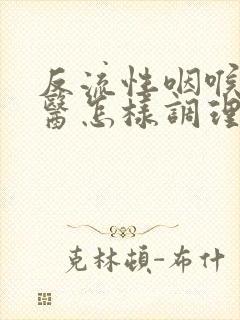 反流性咽喉
醫怎樣調理
克林頓-布什